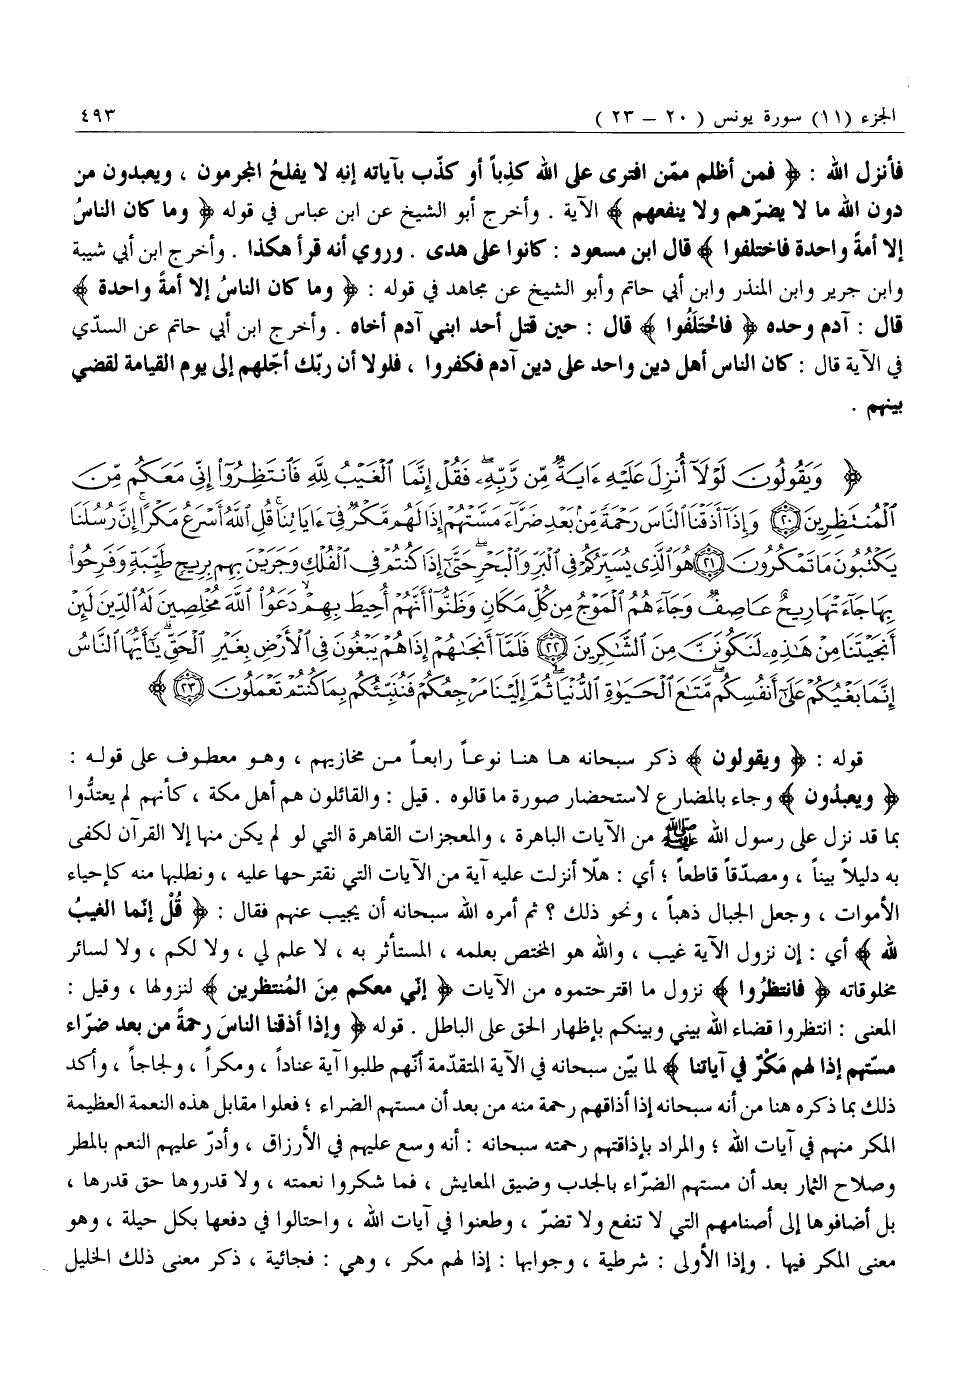 الجزء (١١) سورة يونس ( ٢٠ – ٢٣ ) ٤٩٣
فأنزل الله : ﴿ فمن أظلم ممّن افترى على الله كذِباً أو كذّب بآياته إنه لا يفلحُ المجرمون ، ويعبدون من
دون الله ما لا يضرّهم ولا ينفعهم ﴾ الآية . وأخرج أبو الشيخ عن ابن عباس في قوله ﴿ وما كان الناسُ
إلا أمةً واحدة فاختلفوا ﴾ قال ابن مسعود : كانوا على هدى . وروي أنه قرأ هكذا . وأخرج ابن أبي شيبة
وابن جرير وابن المنذر وابن أبي حاتم وأبو الشيخ عن مجاهد في قوله : ﴿ وما كان الناسُ إلا أمةً واحدة ﴾
قال : آدم وحده ﴿ فاخْتَلَفُوا ﴾ قال : حين قتل أحد ابني آدم أخاه . وأخرج ابن أبي حاتم عن السدّي
في الآية قال : كان الناس أهل دين واحد على دين آدم فكفروا ، فلولا أن ربّك أجّلهم إلى يوم القيامة لقضي
بينهم .
﴿ وَيَقُولُونَ لَوْلَآ أُنزِلَ عَلَيْهِ ءَايَةٌ مِّن رَّبِّهِۦۖ فَقُلْ إِنَّمَا ٱلْغَيْبُ لِلَّهِ فَٱنتَظِرُوٓاْ إِنِّى مَعَكُم مِّنَ
ٱلْمُنتَظِرِينَ ٢٠ وَإِذَآ أَذَقْنَا ٱلنَّاسَ رَحْمَةً مِّنۢ بَعْدِ ضَرَّآءَ مَسَّتْهُمْ إِذَا لَهُم مَّكْرٌ فِىٓ ءَايَاتِنَاۚ قُلِ ٱللَّهُ أَسْرَعُ مَكْرًاۚ إِنَّ رُسُلَنَا
يَكْتُبُونَ مَا تَمْكُرُونَ ٢١ هُوَ ٱلَّذِى يُسَيِّرُكُمْ فِى ٱلْبَرِّ وَٱلْبَحْرِۖ حَتَّىٰٓ إِذَا كُنتُمْ فِى ٱلْفُلْكِ وَجَرَيْنَ بِهِم بِرِيحٍ طَيِّبَةٍ وَفَرِحُواْ
بِهَا جَآءَتْهَا رِيحٌ عَاصِفٌ وَجَآءَهُمُ ٱلْمَوْجُ مِن كُلِّ مَكَانٍ وَظَنُّوٓاْ أَنَّهُمْ أُحِيطَ بِهِمْۙ دَعَوُاْ ٱللَّهَ مُخْلِصِينَ لَهُ ٱلدِّينَ لَئِنْ
أَنجَيْتَنَا مِنْ هَٰذِهِۦ لَنَكُونَنَّ مِنَ ٱلشَّٰكِرِينَ ٢٢ فَلَمَّآ أَنجَىٰهُمْ إِذَا هُمْ يَبْغُونَ فِى ٱلْأَرْضِ بِغَيْرِ ٱلْحَقِّۗ يَٰٓأَيُّهَا ٱلنَّاسُ
إِنَّمَا بَغْيُكُمْ عَلَىٰٓ أَنفُسِكُمۖ مَّتَٰعَ ٱلْحَيَوٰةِ ٱلدُّنْيَاۖ ثُمَّ إِلَيْنَا مَرْجِعُكُمْ فَنُنَبِّئُكُم بِمَا كُنتُمْ تَعْمَلُونَ ٢٣ ﴾
قوله : ﴿ ويقولون ﴾ ذكر سبحانه ها هنا نوعاً رابعاً من مخازيهم ، وهو معطوف على قوله :
﴿ ويعبدُون ﴾ وجاء بالمضارع لاستحضار صورة ما قالوه . قيل : والقائلون هم أهل مكة ، كأنهم لم يعتدُّوا
بما قد نزل على رسول الله ﷺ من الآيات الباهرة ، والمعجزات القاهرة التي لو لم يكن منها إلا القرآن لكفى
به دليلاً بيناً ، ومصدّقاً قاطعاً ؛ أي : هلّا أنزلت عليه آية من الآيات التي نقترحها عليه ، ونطلبها منه كإحياء
الأموات ، وجعل الجبال ذهباً ، ونحو ذلك ؟ ثم أمره الله سبحانه أن يجيب عنهم فقال : ﴿ قُلْ إنّما الغيبُ
لله ﴾ أي : إن نزول الآية غيب ، والله هو المختص بعلمه ، المستأثر به ، لا علم لي ، ولا لكم ، ولا لسائر
مخلوقاته ﴿ فانتظرُوا ﴾ نزول ما اقترحتموه من الآيات ﴿ إنّي معكم مِنَ المُنتظرين ﴾ لنزولها ، وقيل :
المعنى : انتظروا قضاء الله بيني وبينكم بإظهار الحق على الباطل . قوله ﴿ وإذا أذقنا الناسَ رحمةً من بعد ضرّاء
مسّتهم إذا لهم مَكْرٌ في آياتنا ﴾ لما بيّن سبحانه في الآية المتقدّمة أنّهم طلبوا آية عناداً ، ومكراً ، ولجاجاً ، وأكد
ذلك بما ذكره هنا من أنه سبحانه إذا أذاقهم رحمة منه من بعد أن مستهم الضراء ؛ فعلوا مقابل هذه النعمة العظيمة
المكر منهم في آيات الله ؛ والمراد بإذاقتهم رحمته سبحانه : أنه وسع عليهم في الأرزاق ، وأدرّ عليهم النعم بالمطر
وصلاح الثمار بعد أن مستهم الضرّاء بالجدب وضيق المعايش ، فما شكروا نعمته ، ولا قدروها حق قدرها ،
بل أضافوها إلى أصنامهم التي لا تنفع ولا تضرّ ، وطعنوا في آيات الله ، واحتالوا في دفعها بكل حيلة ، وهو
معنى المكر فيها . وإذا الأولى : شرطية ، وجوابها : إذا لهم مكر ، وهي : فجائية ، ذكر معنى ذلك الخليل